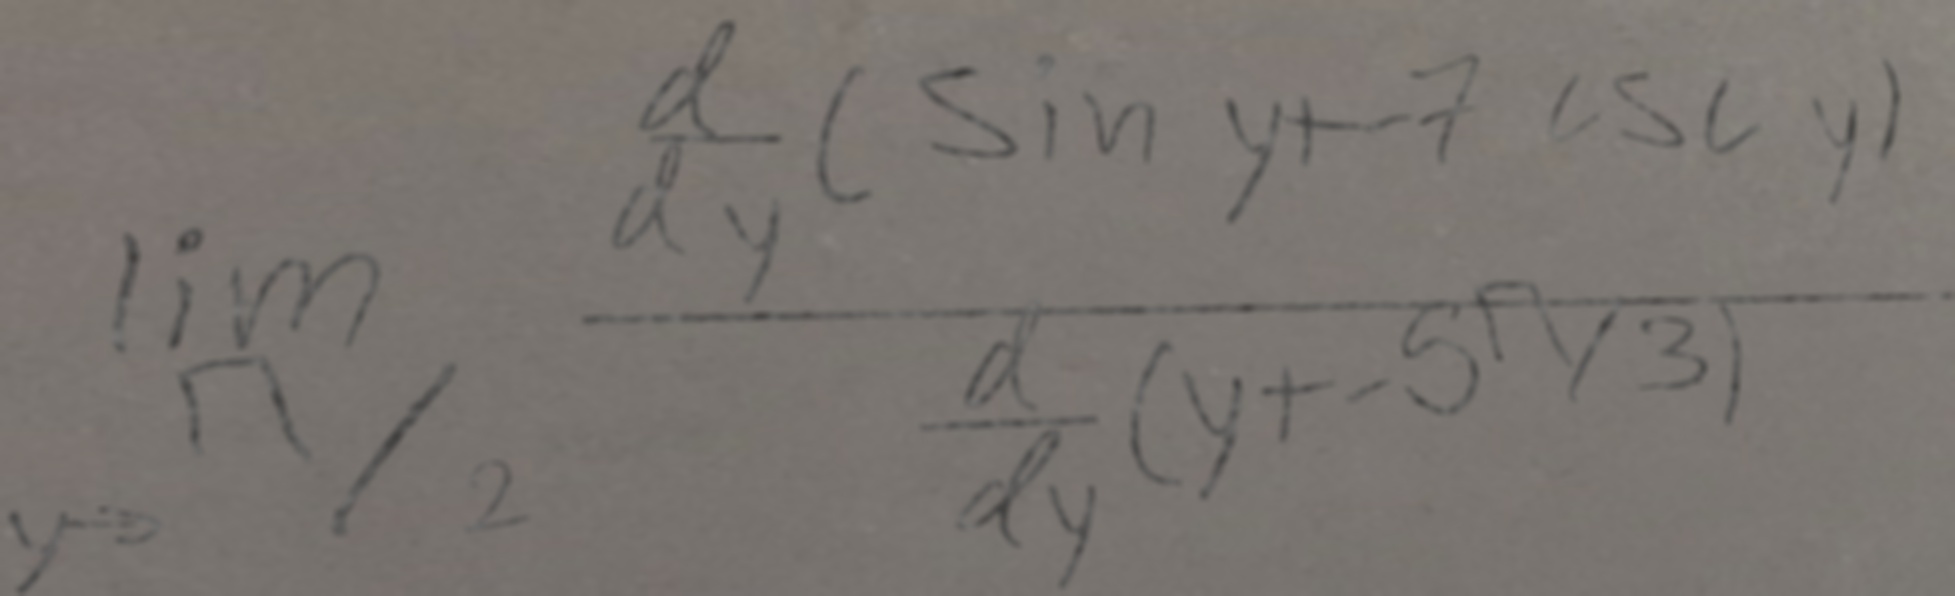 lim y→π/2 \frac{\frac{d}{dy}(sin y+-7 csc y)}{\frac{d}{dy}(y+-5π/3)}